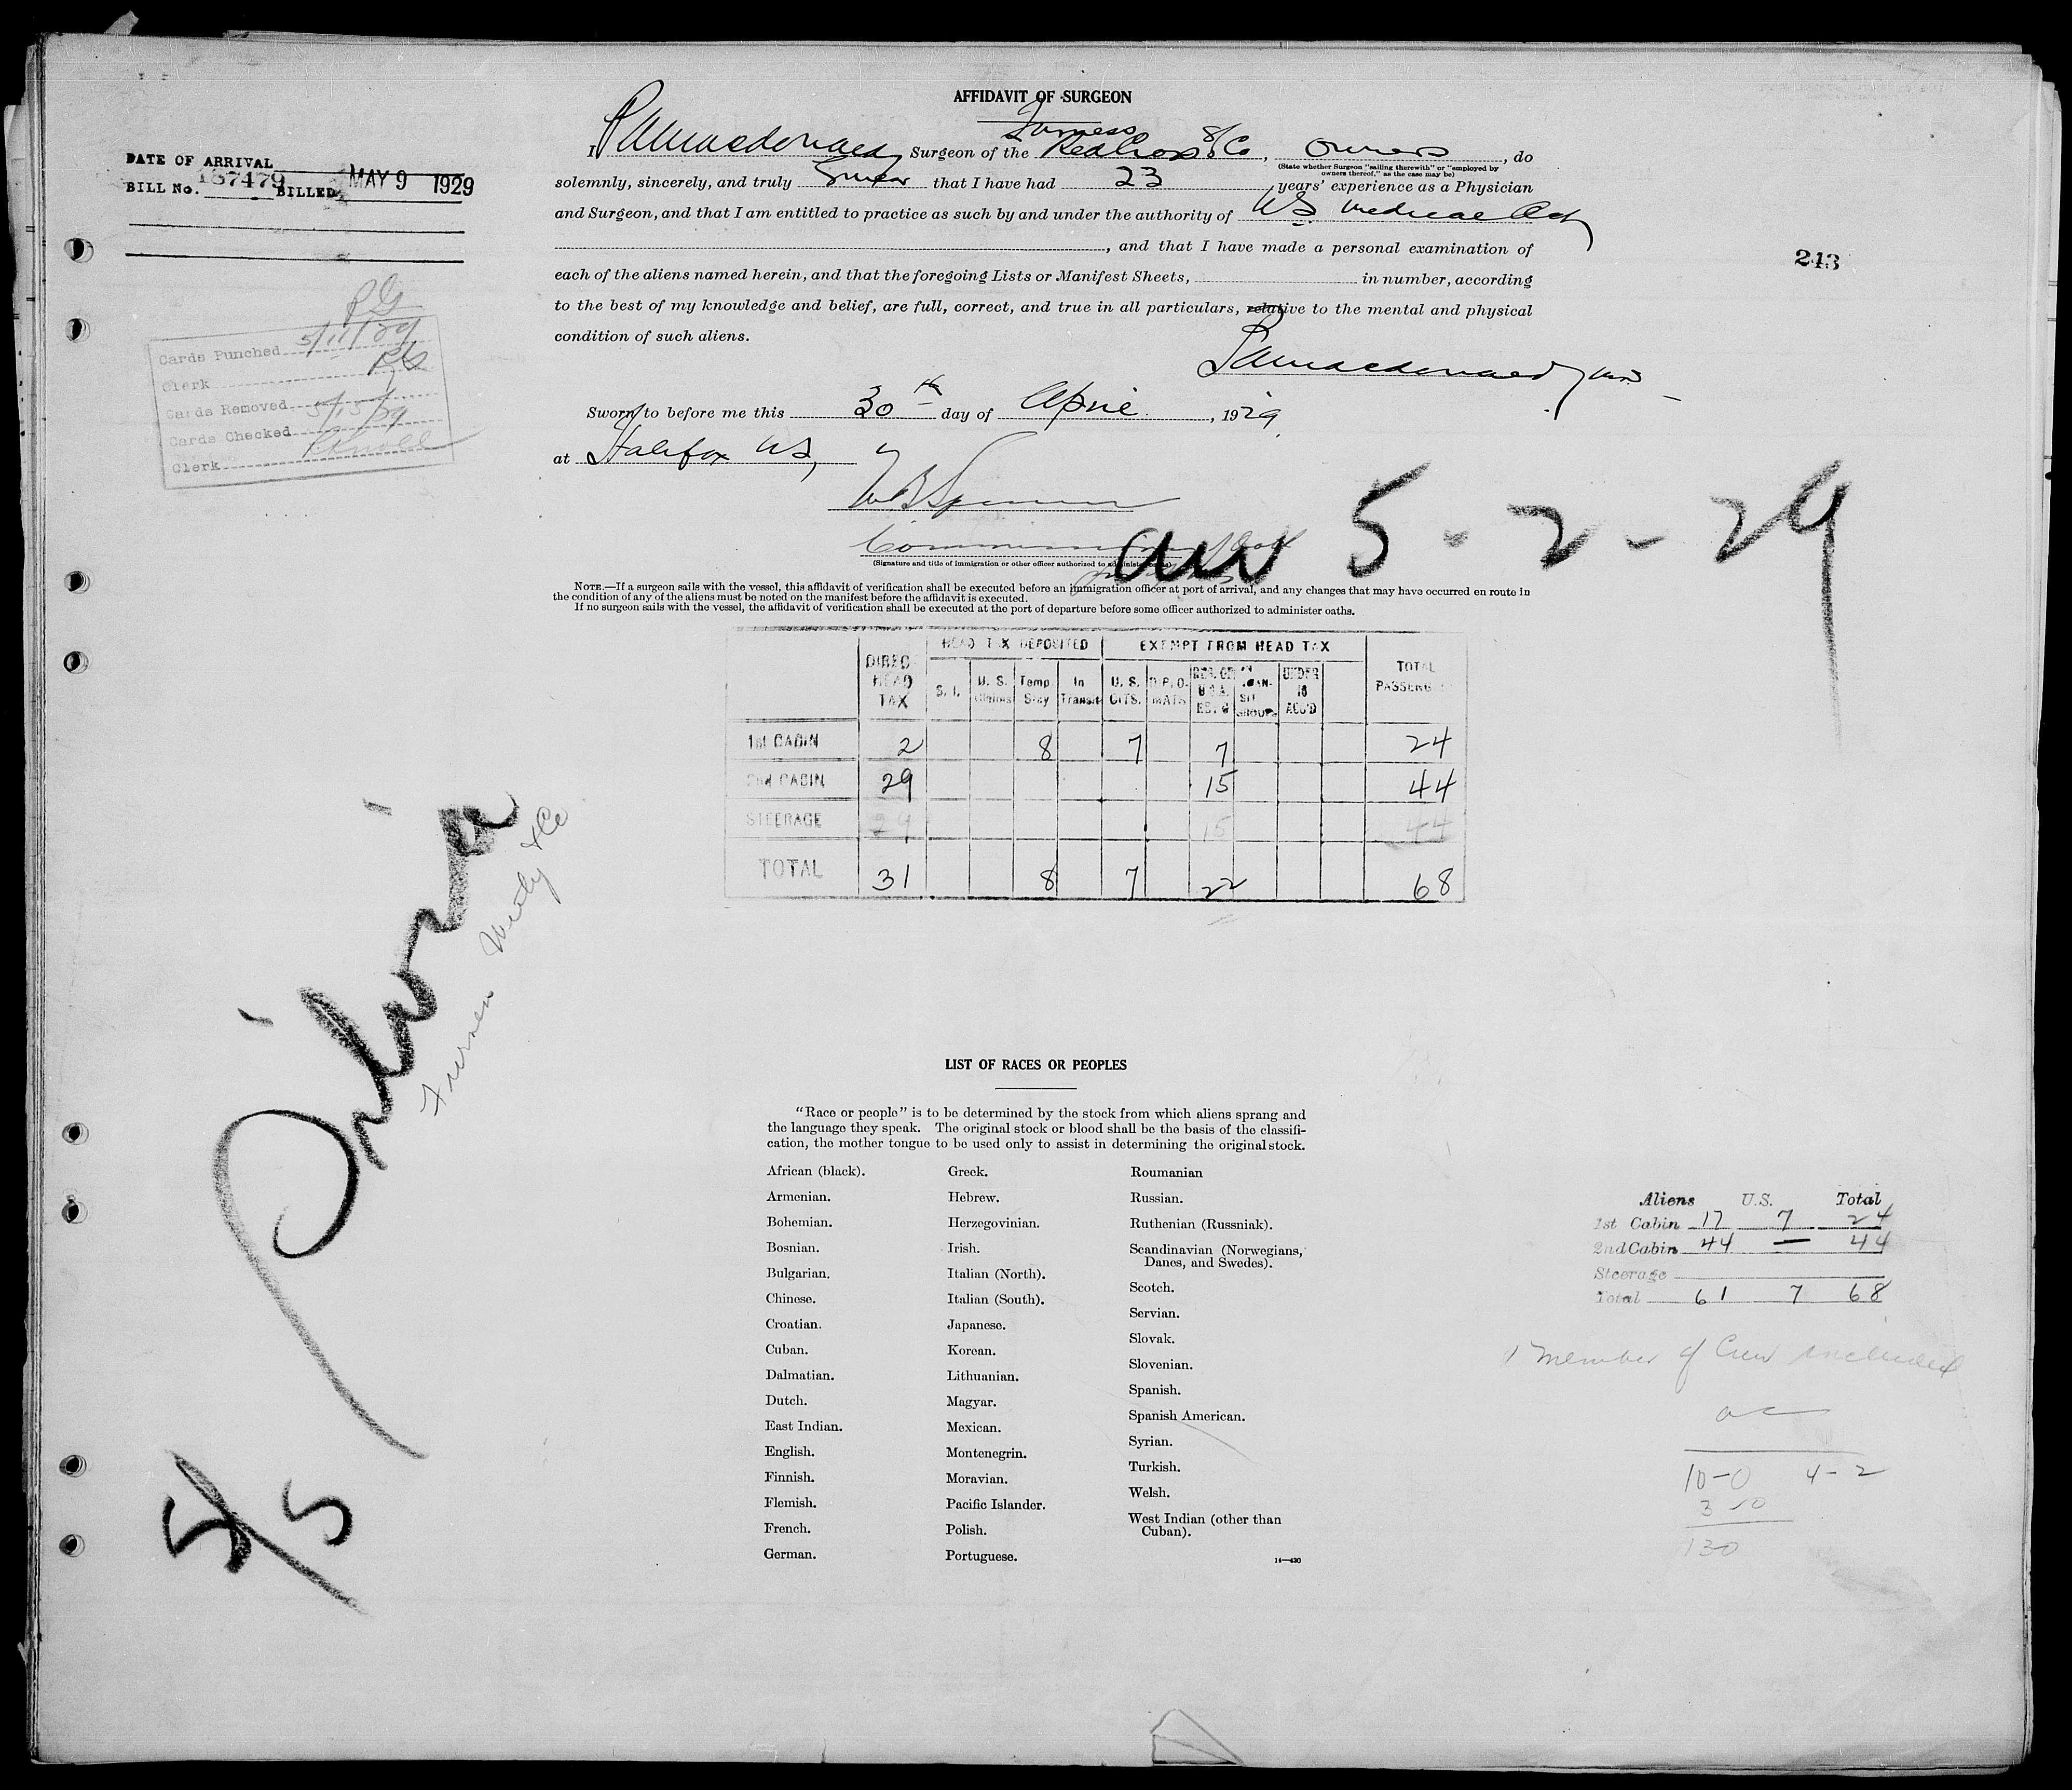 AFFIDAVIT OF SURGEON
Furness
I Macdonald, Surgeon of the Red Cross SS Co, Owners, do
(State whether Surgeon "sailing therewith" or "employed by
owners thereof," as the case may be)
solemnly, sincerely, and truly Swear that I have had 23 years' experience as a Physician
and Surgeon, and that I am entitled to practice as such by and under the authority of NS Medical Act
, and that I have made a personal examination of
each of the aliens named herein, and that the foregoing Lists or Manifest Sheets, in number, according
to the best of my knowledge and belief, are full, correct, and true in all particulars, relative to the mental and physical
condition of such aliens.
Macdonald
Sworn to before me this 30th day of April, 1929
at Halifax NS,
(Signature and title of immigration or other officer authorized to administer oaths)
arr 5-2-29
NOTE.—If a surgeon sails with the vessel, this affidavit of verification shall be executed before an immigration officer at port of arrival, and any changes that may have occurred en route in
the condition of any of the aliens must be noted on the manifest before the affidavit is executed.
If no surgeon sails with the vessel, the affidavit of verification shall be executed at the port of departure before some officer authorized to administer oaths.
DATE OF ARRIVAL
BILL No. 187479 BILLED MAY 9 1929
RG
Cards Punched 5/11/29
Clerk
Cards Removed 5/15/29
Cards Checked
Clerk
243
HEAD TAX DEPOSITED EXEMPT FROM HEAD TAX
DIRECT HEAD TAX S. I. U. S. Claims Temp. Stay In Transit U. S. CITS. DIPLO-MATS IN TRAN-SIT GROUPS UNDER 16 ACC'D TOTAL PASSENG
1st CABIN 2 8 7 7 24
2nd CABIN 29 15 44
STEERAGE 29 15 44
TOTAL 31 8 7 22 68
Silvia
Furness Withy & Co
5/5
LIST OF RACES OR PEOPLES
"Race or people" is to be determined by the stock from which aliens sprang and
the language they speak. The original stock or blood shall be the basis of the classifi-
cation, the mother tongue to be used only to assist in determining the original stock.
African (black).
Armenian.
Bohemian.
Bosnian.
Bulgarian.
Chinese.
Croatian.
Cuban.
Dalmatian.
Dutch.
East Indian.
English.
Finnish.
Flemish.
French.
German.
Greek.
Hebrew.
Herzegovinian.
Irish.
Italian (North).
Italian (South).
Japanese.
Korean.
Lithuanian.
Magyar.
Mexican.
Montenegrin.
Moravian.
Pacific Islander.
Polish.
Portuguese.
Roumanian
Russian.
Ruthenian (Russniak).
Scandinavian (Norwegians,
Danes, and Swedes).
Scotch.
Servian.
Slovak.
Slovenian.
Spanish.
Spanish American.
Syrian.
Turkish.
Welsh.
West Indian (other than
Cuban).
14—430
Aliens U.S. Total
1st Cabin 17 7 24
2nd Cabin 44 — 44
Steerage
Total 61 7 68
1 member of Crew included
10-0 4-2
3
130